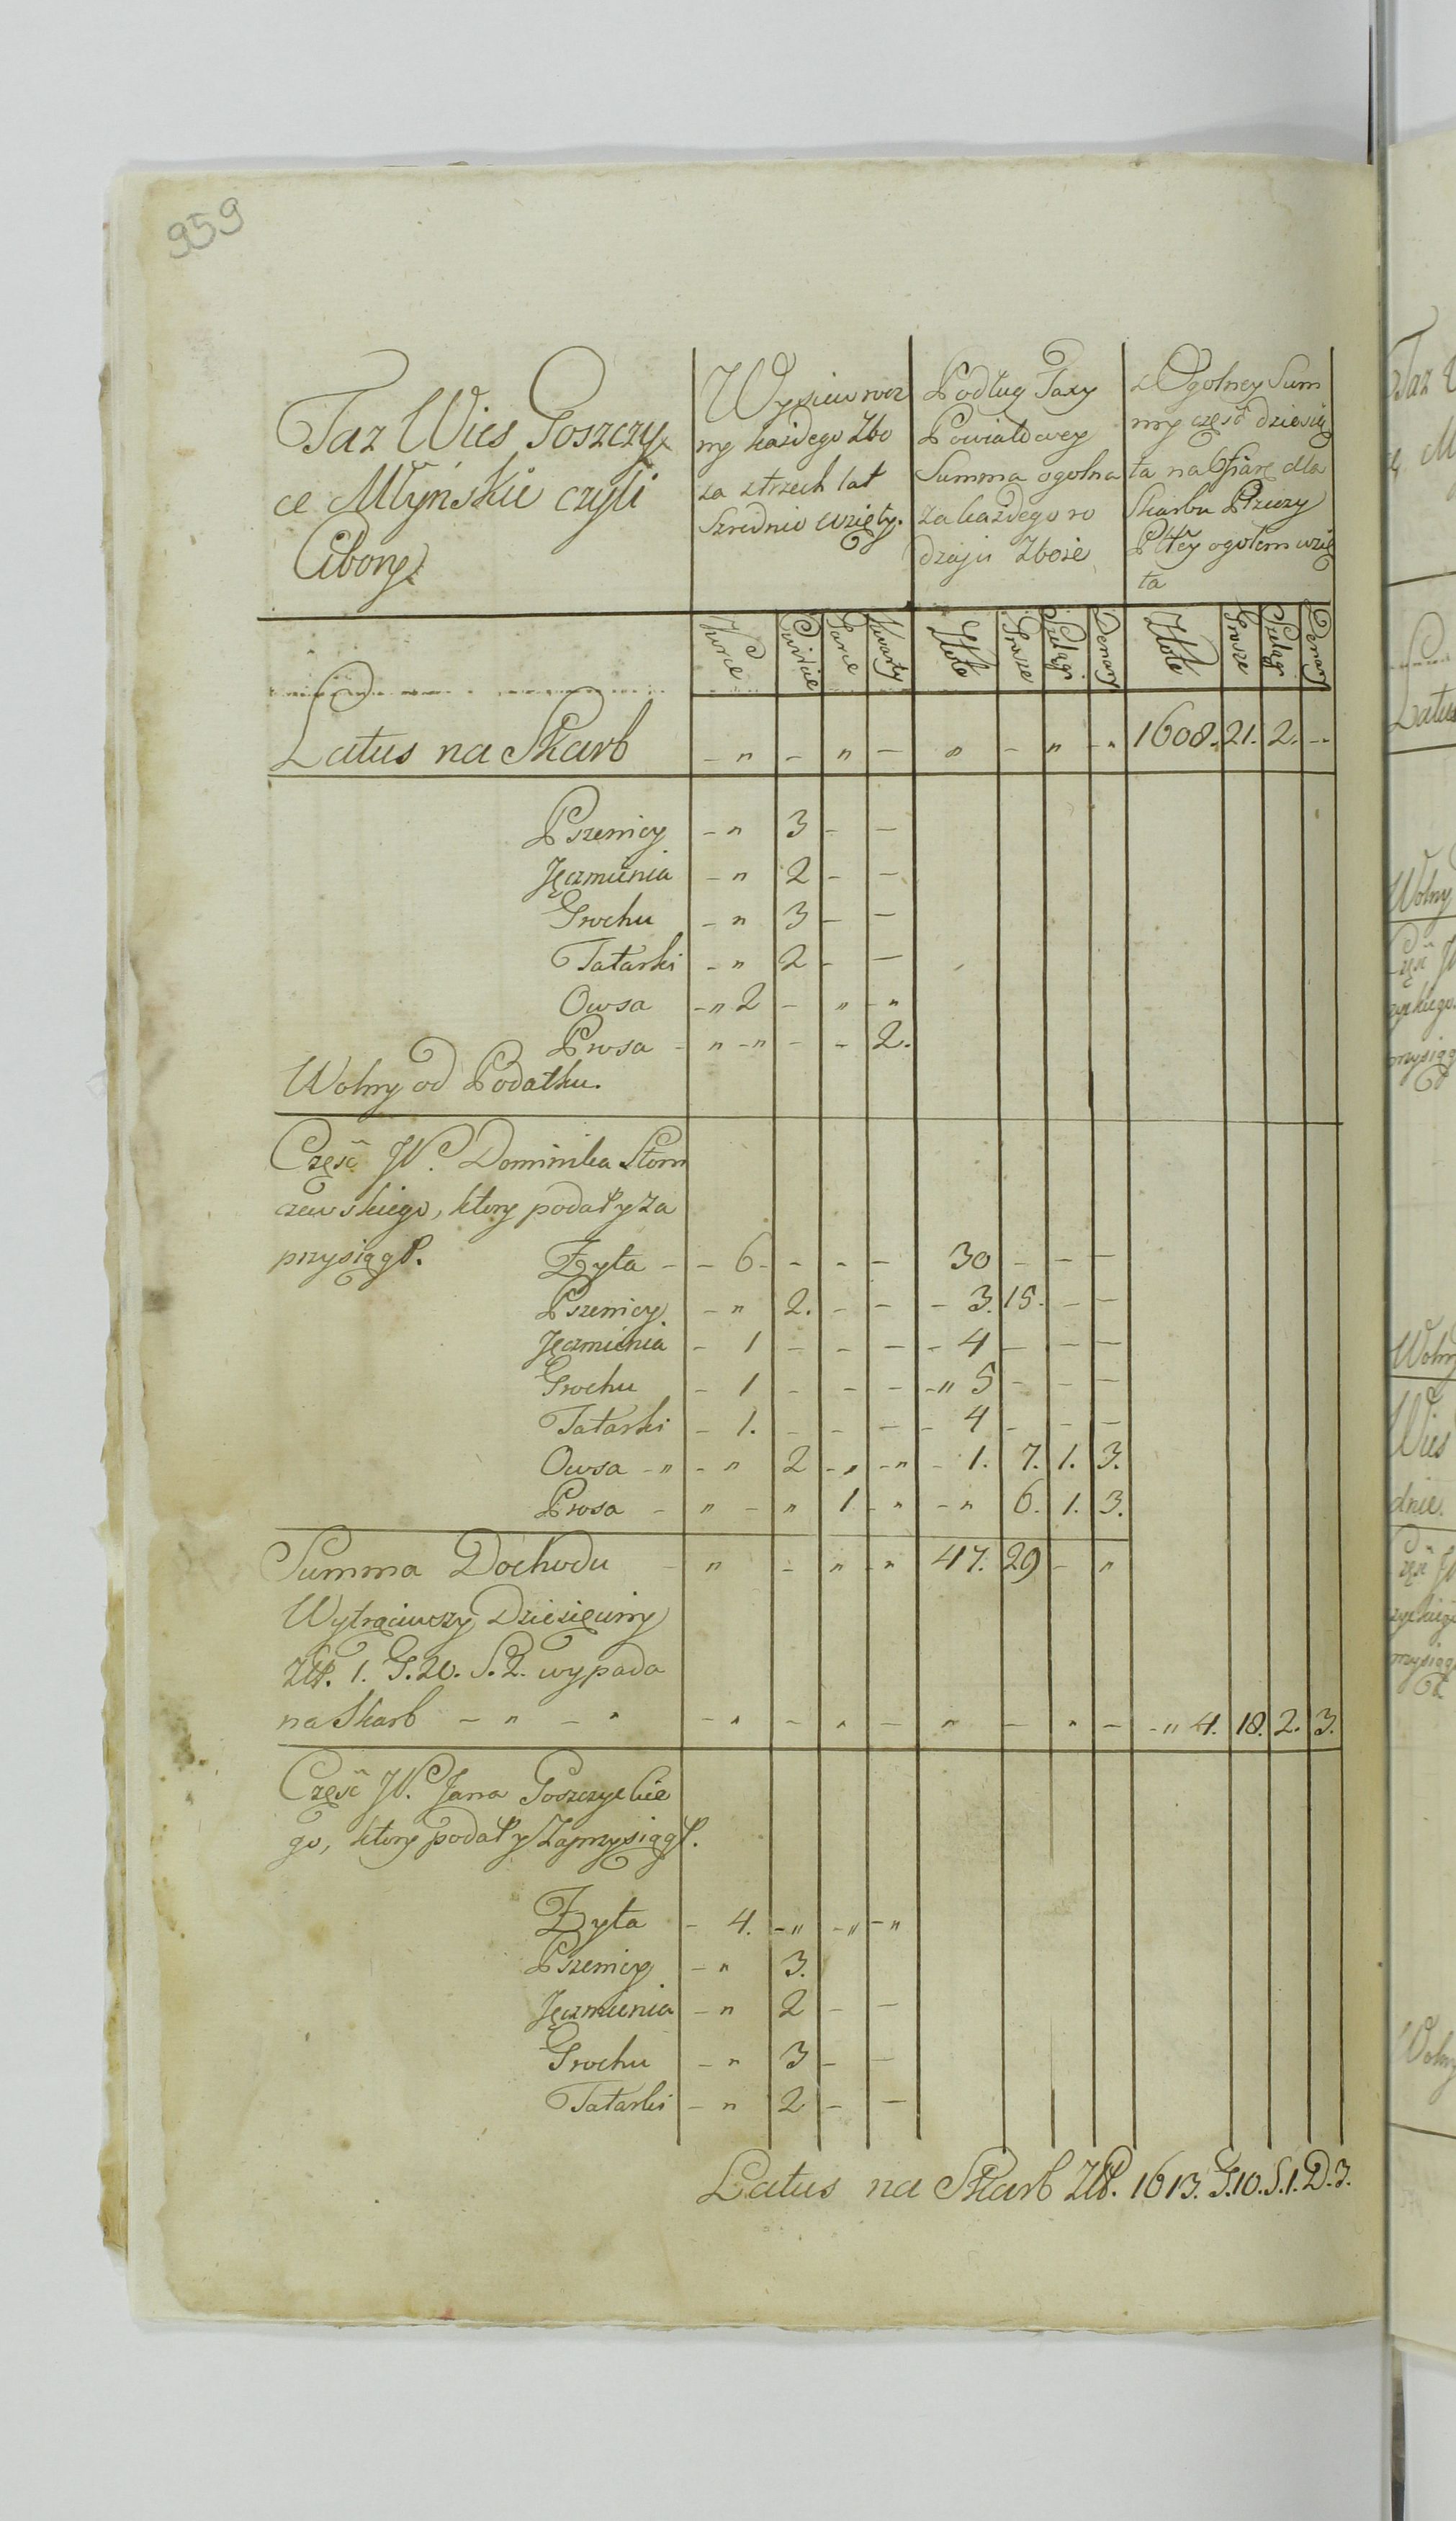 959
Taz Wies Goszczy
ce Młyńskie czyli
Cibory
Wysiew rocz
ny każdego Zbo
za z trzech lat
Szrednio wzięty.
Podług Taxy
Powiatowey
Summa ogolna
za każdego ro
dzaju Zboże
z Ogolney Sum
my część dziesią
ta na Ofiarę dla
Skarbu Rzeczy
Pltey ogołem wzię
ta
Korce Cwircie Garce Kwarty Złote Grosze Szelągi Denary Złote Grosze Szelągi Denary
Latus na Skarb - " - " - " - " - " 1608. 21. 2. --
Pszenicy - " 3 - -
Jęczmienia - " 2 - -
Grochu - " 3 - -
Tatarki - " 2 - -
Owsa - " 2 - " - "
Prosa - " - " - - 2.
Wolny od Podatku.
Część JP. Dominika Słom
czewskiego, ktory podał y za
przysiągł.
Żyta - - 6 - - - - 30 - - -
Pszenicy - " 2. - - - 3. 15. - -
Jęczmienia - 1 - - - - 4 - - -
Grochu - 1 - - - - " 5 - - -
Tatarki - 1. - - - - 4 - - -
Owsa - " - " 2 - " - " - 1. 7. 1. 3.
Prosa - " - " 1 - " - " 6. 1. 3.
Summa Dochodu - " - " - " 47. 29 - "
Wytrąciwszy Dziesięciny
Złł. 1. G. 20. S. 2. wypada
na Skarb - " - " - " - " - " - " - - " 4. 18. 2. 3.
Część JP. Jana Goszczyckie
go, ktory podał y Zaprzysiągł.
Żyta - 4. - " - " - "
Pszenicy - " 3.
Jęczmienia - " 2 - -
Grochu - " 3 - -
Tatarki - " 2 - -
Latus na Skarb Złł. 1613. G. 10. S. 1. D. 3.